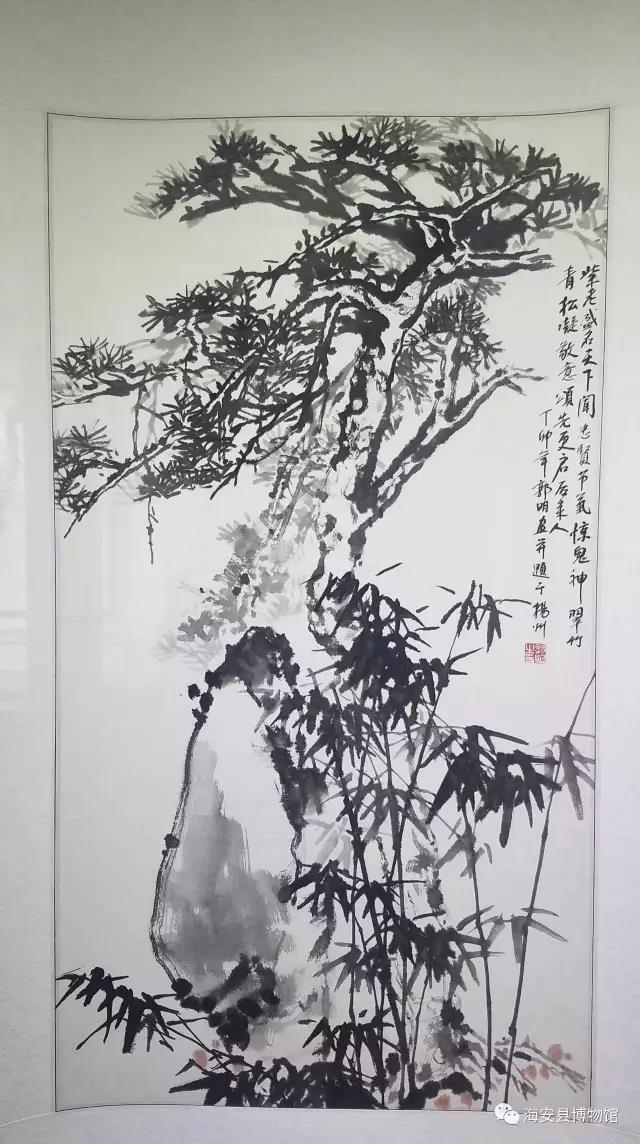 紫老盛名天下闻忠贤节气惊鬼神翠竹
青松凝敬意颂先更启后来人
丁卯年郭明画并题于扬州
海安县博物馆